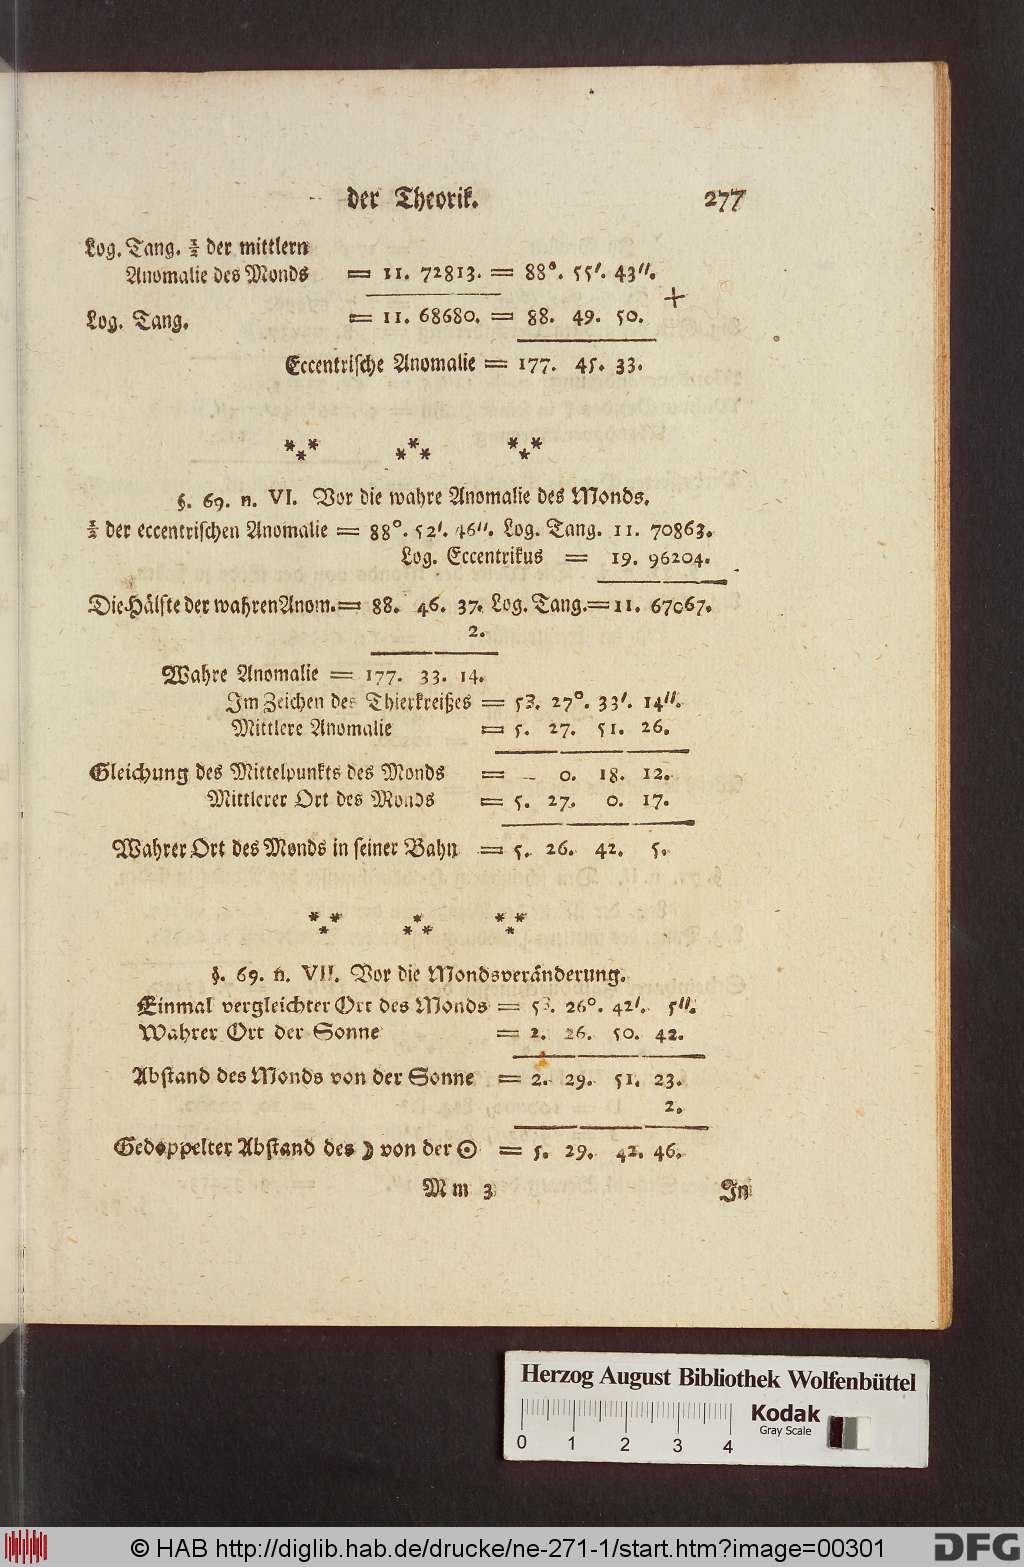 der Theorik. 277
Log. Tang. ½ der mittlern
Anomalie des Monds = 11. 72813. = 88°. 55'. 43''.
Log. Tang. = 11. 68680. = 88. 49. 50. +
Eccentrische Anomalie = 177. 45. 33.
*** *** ***
§. 69. n. VI. Vor die wahre Anomalie des Monds.
½ der eccentrischen Anomalie = 88°. 52'. 46''. Log. Tang. 11. 70863.
Log. Eccentrikus = 19. 96204.
Die Hälfte der wahren Anom. = 88. 46. 37. Log. Tang. = 11. 67067.
2.
Wahre Anomalie = 177. 33. 14.
Im Zeichen des Thierkreißes = 5Z. 27°. 33'. 14''.
Mittlere Anomalie = 5. 27. 51. 26.
Gleichung des Mittelpunkts des Monds = – 0. 18. 12.
Mittlerer Ort des Monds = 5. 27. 0. 17.
Wahrer Ort des Monds in seiner Bahn = 5. 26. 42. 5.
*** *** ***
§. 69. n. VII. Vor die Mondsveränderung.
Einmal vergleichter Ort des Monds = 5Z. 26°. 42'. 5''.
Wahrer Ort der Sonne = 2. 26. 50. 42.
Abstand des Monds von der Sonne = 2. 29. 51. 23.
2.
Gedoppelter Abstand des ☽ von der ☉ = 5. 29. 42. 46.
Mm 3 In
Herzog August Bibliothek Wolfenbüttel
Kodak
Gray Scale
0 1 2 3 4
© HAB http://diglib.hab.de/drucke/ne-271-1/start.htm?image=00301
DFG